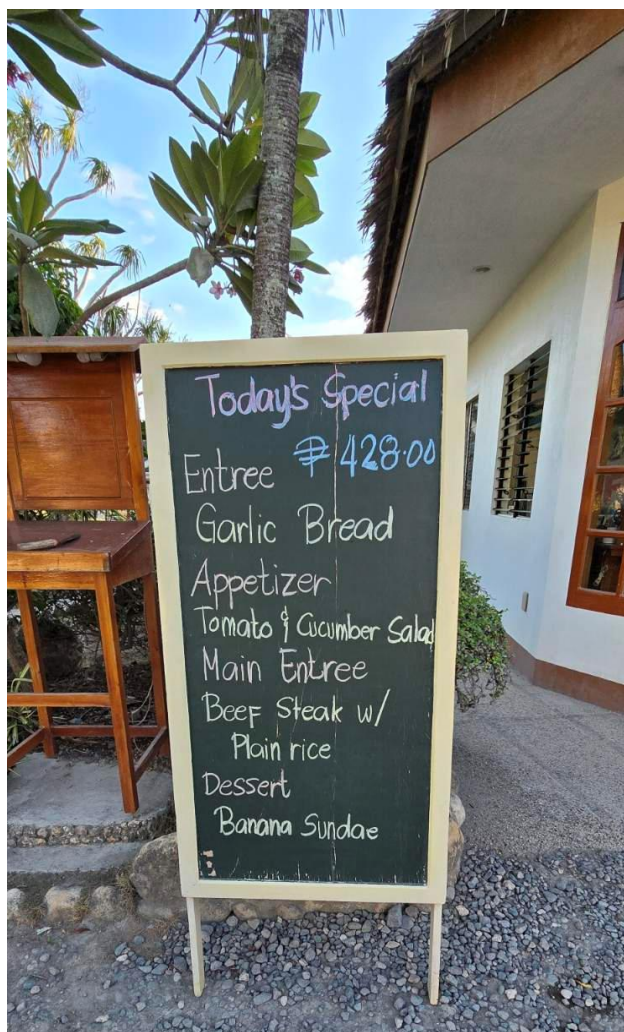 Today's Special
₱ 428.00
Entree
Garlic Bread
Appetizer
Tomato & Cucumber Salad
Main Entree
Beef Steak w/
Plain rice
Dessert
Banana Sundae